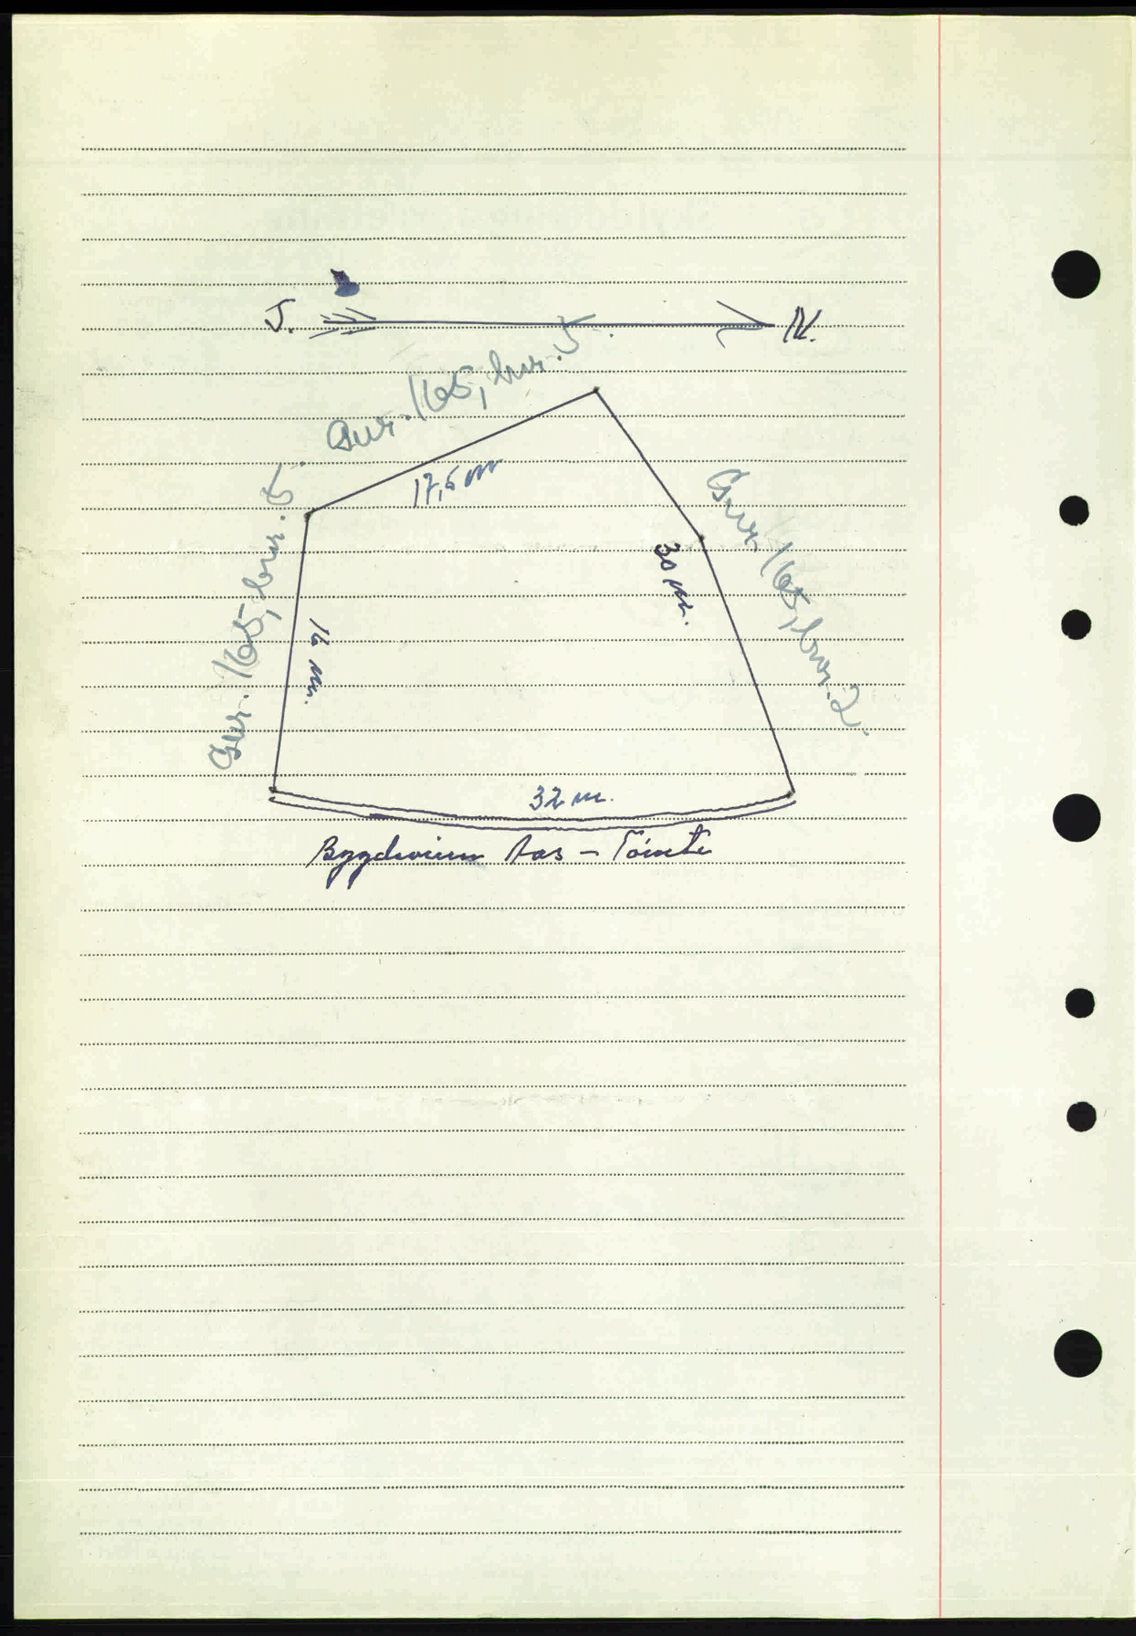 S. N.
Gnr. 165, bnr. 5.
17,5 m
Gnr. 165, bnr. 5.
16 m.
30 m.
Gnr. 165, bnr. 2.
32 m.
Bygdeveien Aas - Tømte